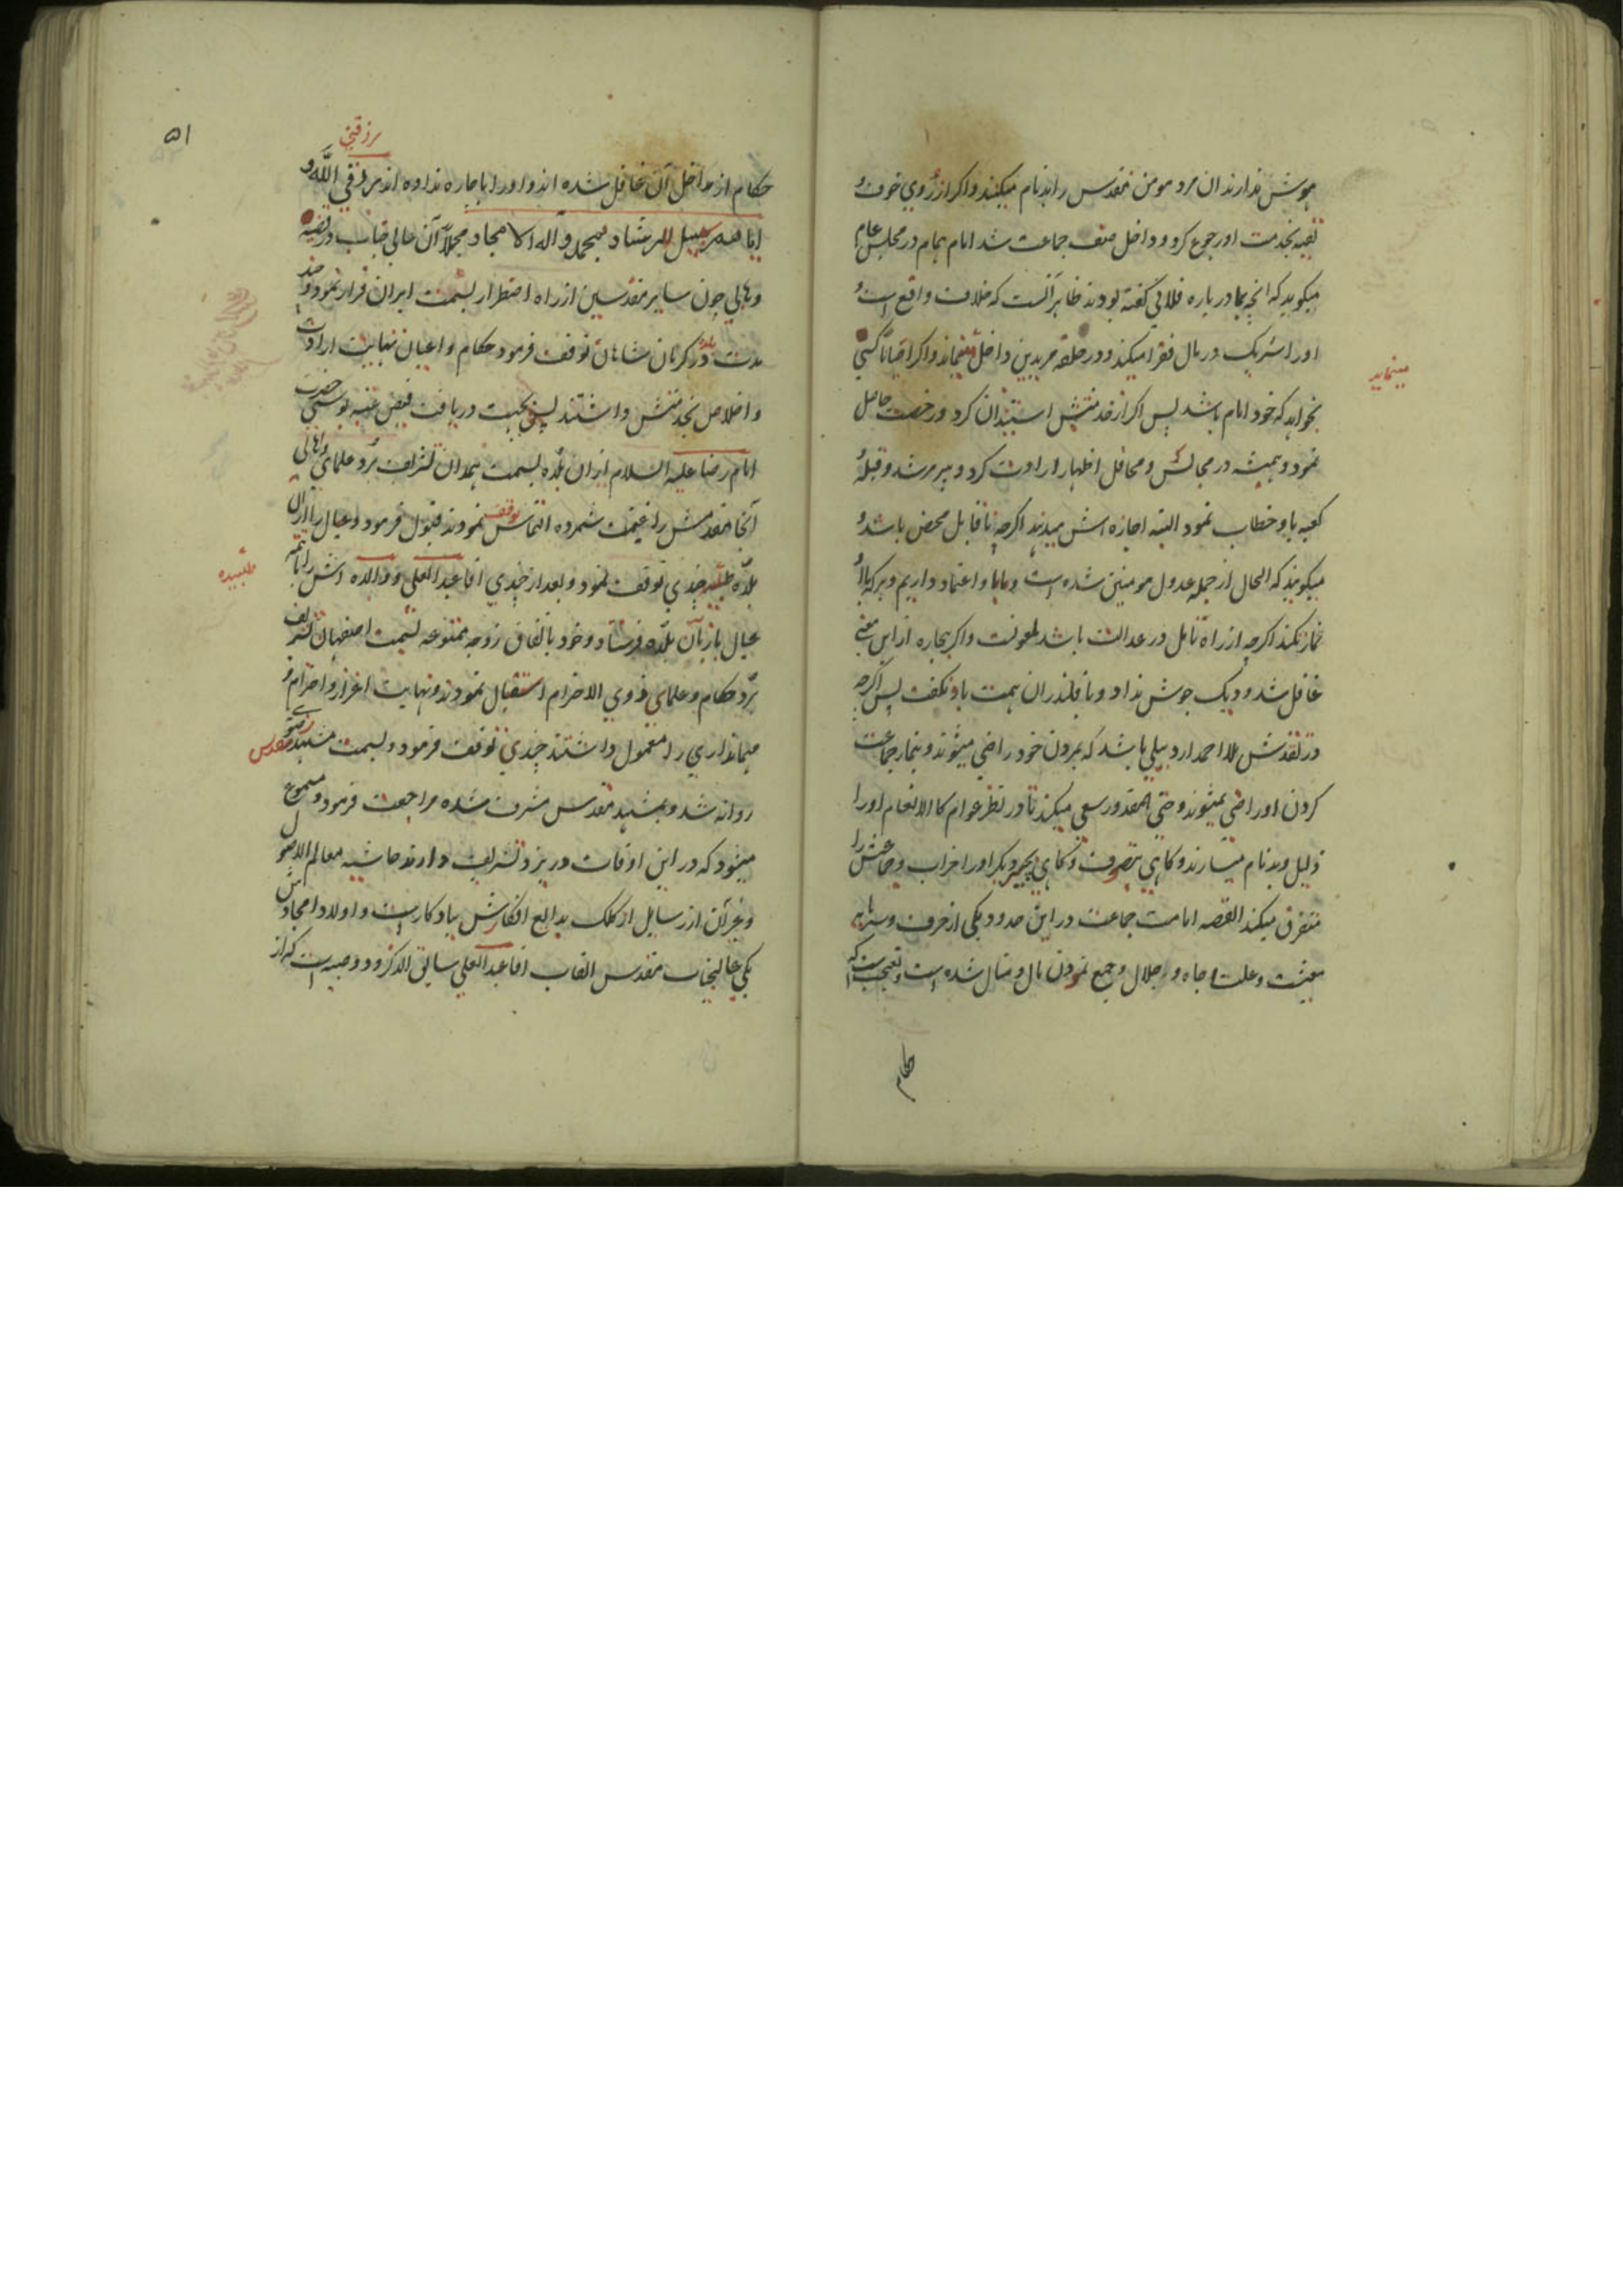 هوش ندارند ان مرد مومن مقدس را بدنام میکنند و اکر از روی خوف و
تقیه بخدمت او رجوع کرد و داخل صف جماعت شد امام همام در مجلس عام
میکوید که انچه بما درباره فلانی کفته بودند ظاهر آنست که خلاف واقع است و
او را شریک در مال فقرا میکند و در حلقه مریدین داخل مینماید و اکر احیانا کسی
مینماید
بخواهد که خود امام باشد پس اکر از خدمتش استیذان کرد و رخصت حاصل
نمود و همیشه در مجالس و محافل اظهار ارادت کرد و پیر مرشد و قبله و
کعبه باو خطاب نمود البته اجازه اش میدهند اکرچه ناقابل محض باشد و
میکویند که الحال از جمله عدول مومنین شده است و مابا و اعتماد داریم و هر که بااو
نماز نکند اکرچه از راه تامل در عدالت باشد ملعونست و اکر بیچاره از این معنی
غافل شد و دیک جوش نداد و با قلندران همت یاد نکفت پس اکرچه
در تقدس ملا احمد اردبیلی باشد که بمردن خود راضی میشوند و بنماز جماعت
کردن او راضی نمیشوند و حتی المقدور سعی میکنند تا در نظر عوام کالانعام او را
ذلیل و بدنام میسازند و کاهی بتصرف و کاهی بچیز دیکر او را خراب و جماعتش را
متفرق میکنند القصه امامت جماعت در این حدود یکی از حرف و سرمایه
معیشت و علت جاه و جلال و جمع نمودن مال و منال شده است و تعجب است که
حکام
۵۱
مرزقنی
حکام از مداخل آن غافل شده اند و او را باجاره نداده اند مرزقنی الله و
ایاهم سبیل الرشاد بمحمد و آله الامجاد مجملا آن عالی جناب در قضیه
وهابی چون سایر مقدسین از راه اضطرار بسمت ایران فرار نمود و چند
مدت در بلده کرمان شاهان توقف فرمود حکام و اعیان نهایت ارادت
و اخلاص بخدمتش داشتند پس بجهت دریافت فیض عتبه بوسی حضرت
امام رضا علیه السلام از ان بلده بسمت همدان تشریف برد علمای و اهالی
آنجا مقدمش را غنیمت شمرده التماس توقف نمودند قبول فرمود و عیال را از ان
بلده طلبیده چندی توقف نمود و بعد از چندی اقا عبد العلی و والده اش را با تتمه
طلبیده
عیال باز بآن بلده فرستاد و خود باتفاق زوجه ممتوعه بسمت اصفهان تشریف
برد حکام و علمای ذوی الاحترام استقبال نمودند و نهایت اعزاز و احترام و
مهمانداری را معمول داشتند چندی توقف فرمود و بسمت مشهد مقدس
روانه شد و بمشهد مقدس مشرف شده مراجعت فرمود و مسموع
میشود که در این اوقات در یزد تشریف دارند حاشیه معالم الاصول
و غیر آن از رسایل از کلک بدایع افکارش یادکار است و اولاد امجادش
یکی عالیجناب مقدس القاب اقا عبد العلی سابق الذکر و دو صبیه است که از